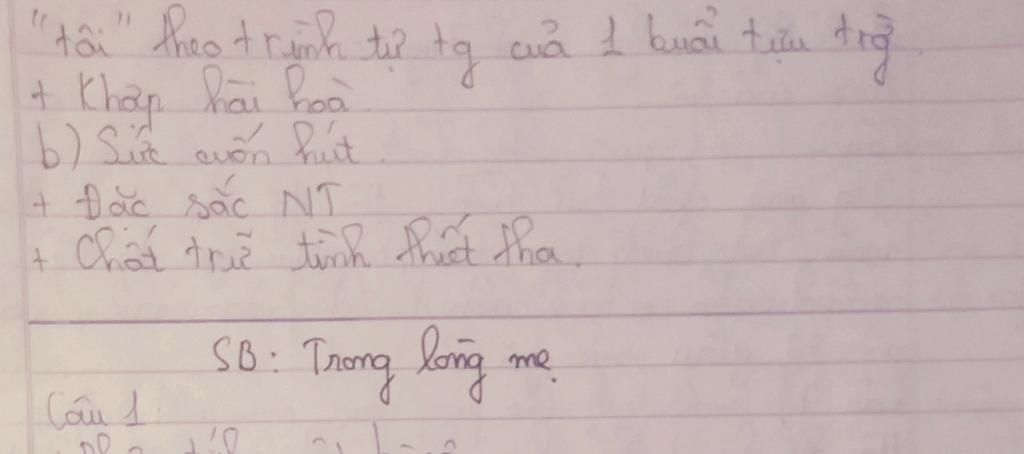 "tôi" theo trình tự tg của 1 buổi tựu trg
+ Kháp hài hoà
b) Sức cuốn hút.
+ Đặc sắc NT
+ Chất trữ tình thiết tha.
SB: Trong lòng mẹ.
Câu 1